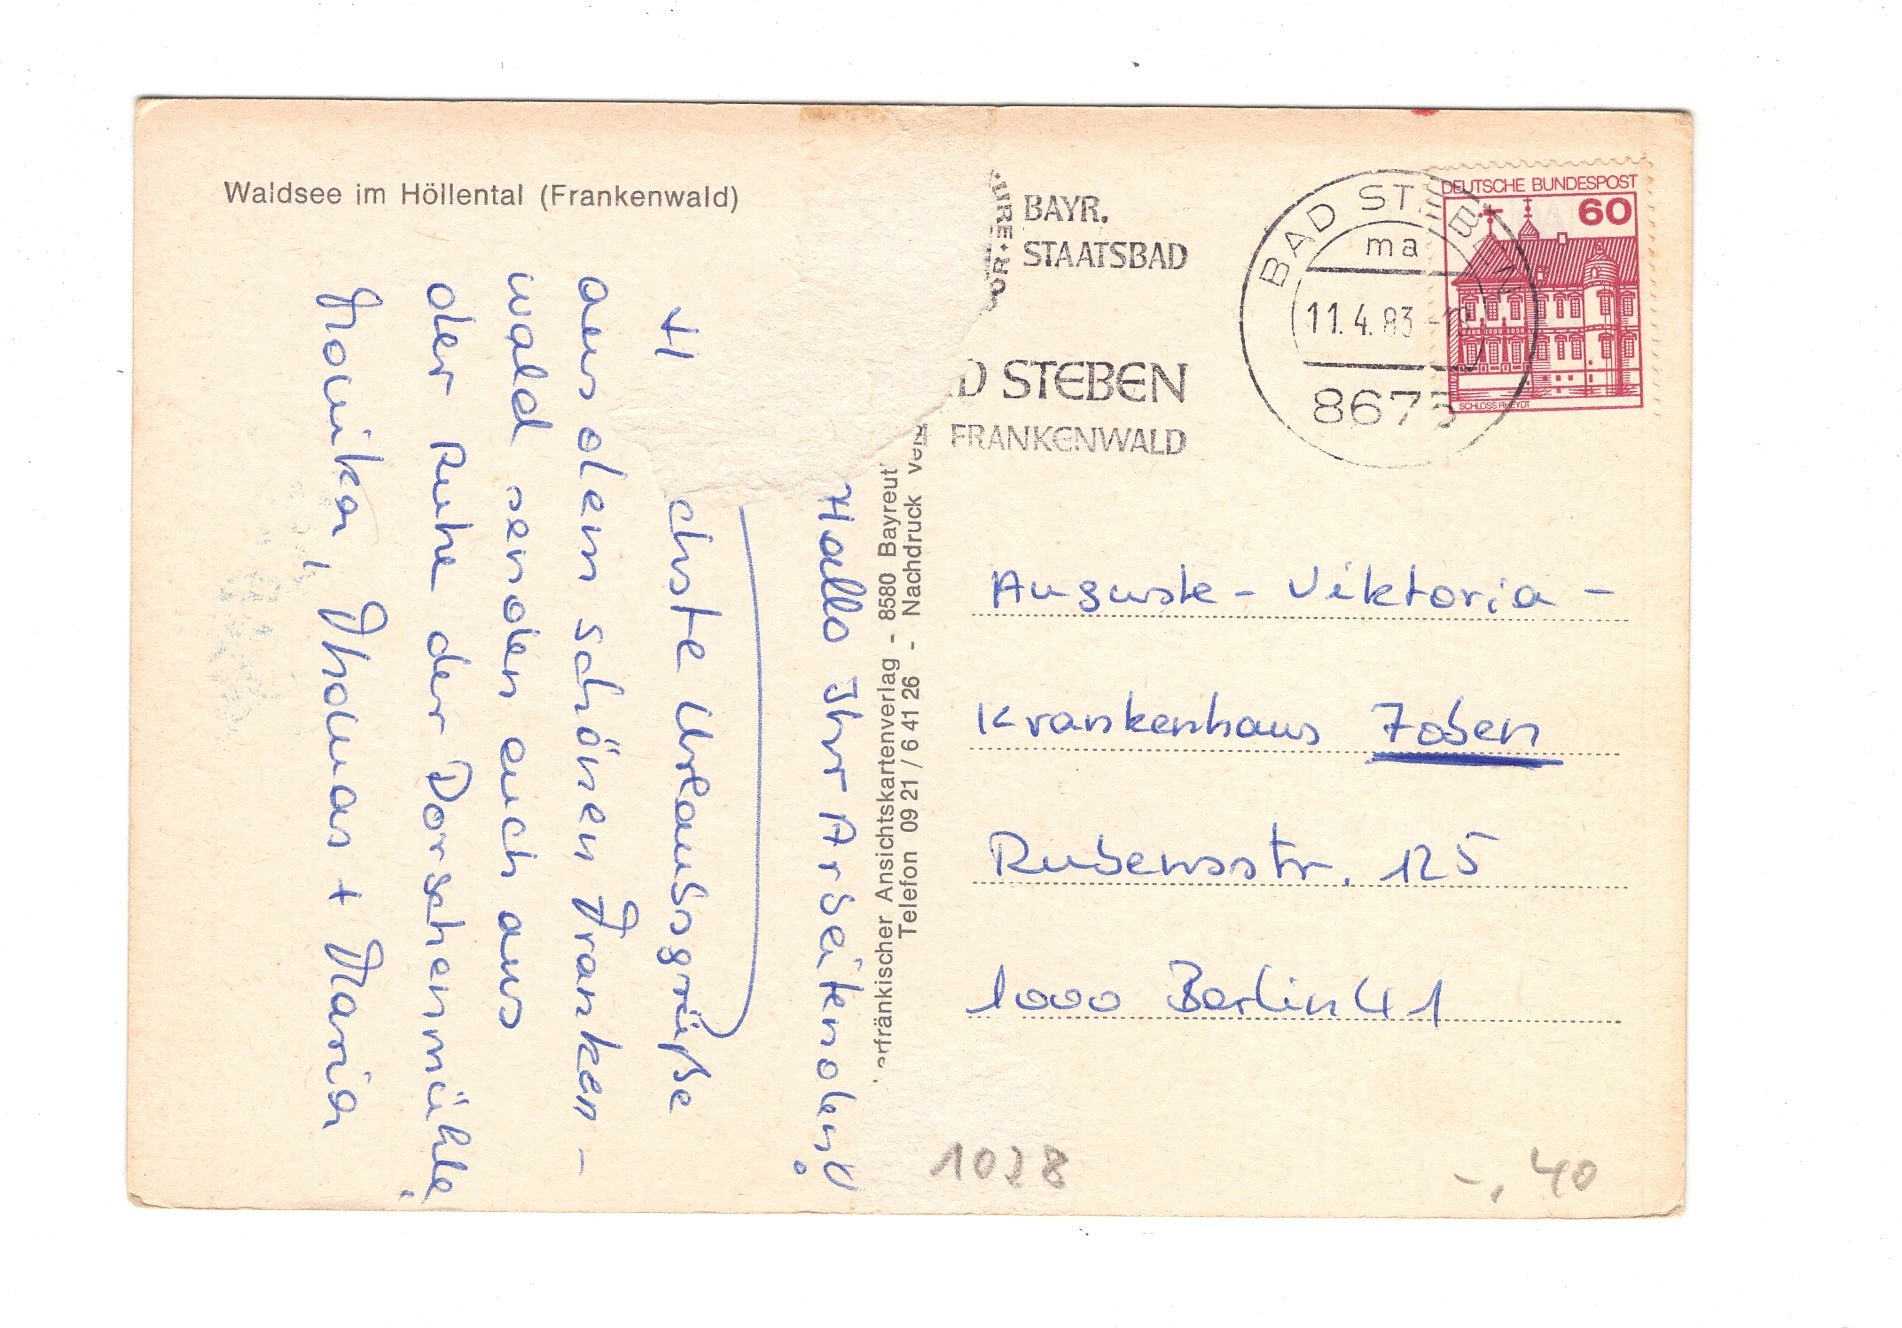 Waldsee im Höllental (Frankenwald)
Hallo Ihr Arbeitenden!
H chste Urlaubsgrüße
aus dem schönen Franken-
wald senden euch aus
der Ruhe der Dorschenmühle,
Monika, Thomas + Maria
erfränkischer Ansichtskartenverlag - 8580 Bayreut
Telefon 09 21 / 6 41 26 - Nachdruck ver
BAYR.
STAATSBAD
D STEBEN
FRANKENWALD
BAD STEBEN
ma
11.4.83
8675
DEUTSCHE BUNDESPOST
60
SCHLOSS RHEYDT
Auguste-Viktoria-
Krankenhaus
Rubensstr. 125
1000 Berlin 41
1028
-,40